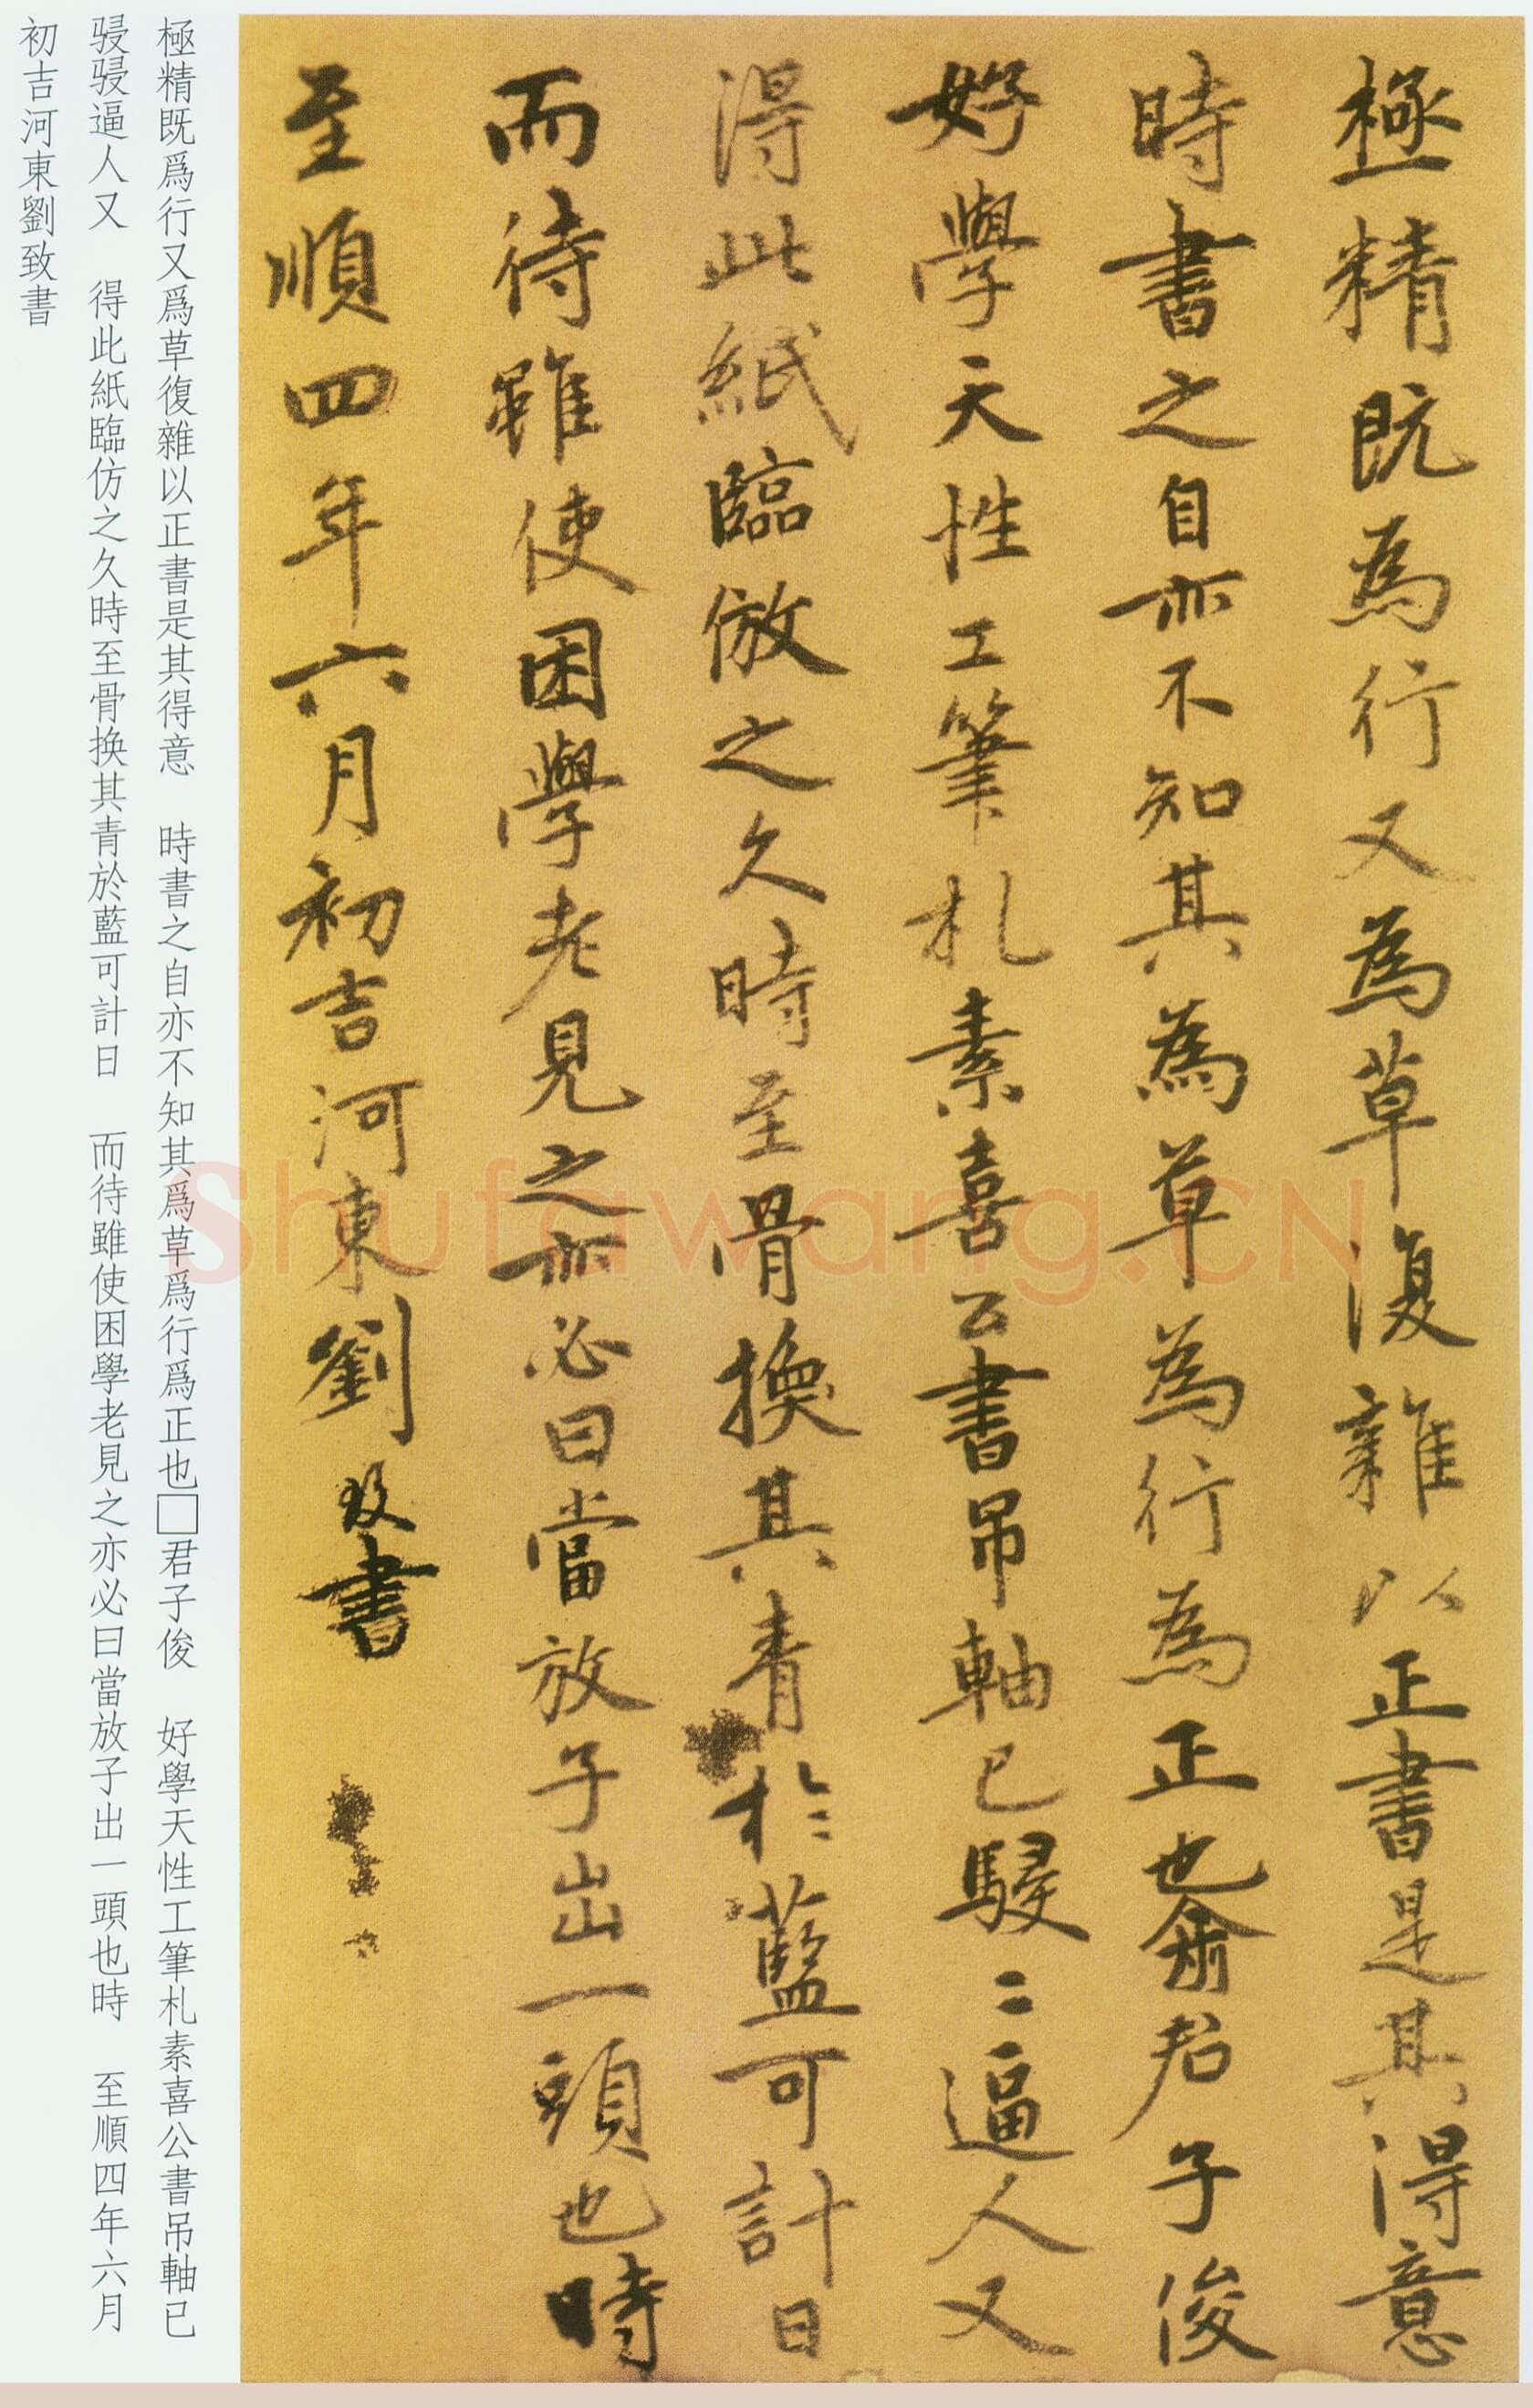 極精既為行又為草復雜以正書是其得意
時書之自亦不知其為草為行為正也俞君子俊
好學天性工筆札素喜公書帋軸已駸〻逼人又
淂此紙臨倣之久時至骨換其青於藍可計日
而待雖使困學老見之亦必曰當放子出一頭也時
至順四年六月初吉河東劉致書
極精既爲行又爲草復雜以正書是其得意　時書之自亦不知其爲草爲行爲正也□君子俊　好學天性工筆札素喜公書吊軸已
駸駸逼人又　得此紙臨仿之久時至骨換其青於藍可計日　而待雖使困學老見之亦必曰當放子出一頭也時　至順四年六月
初吉河東劉致書
Shufawang.CN